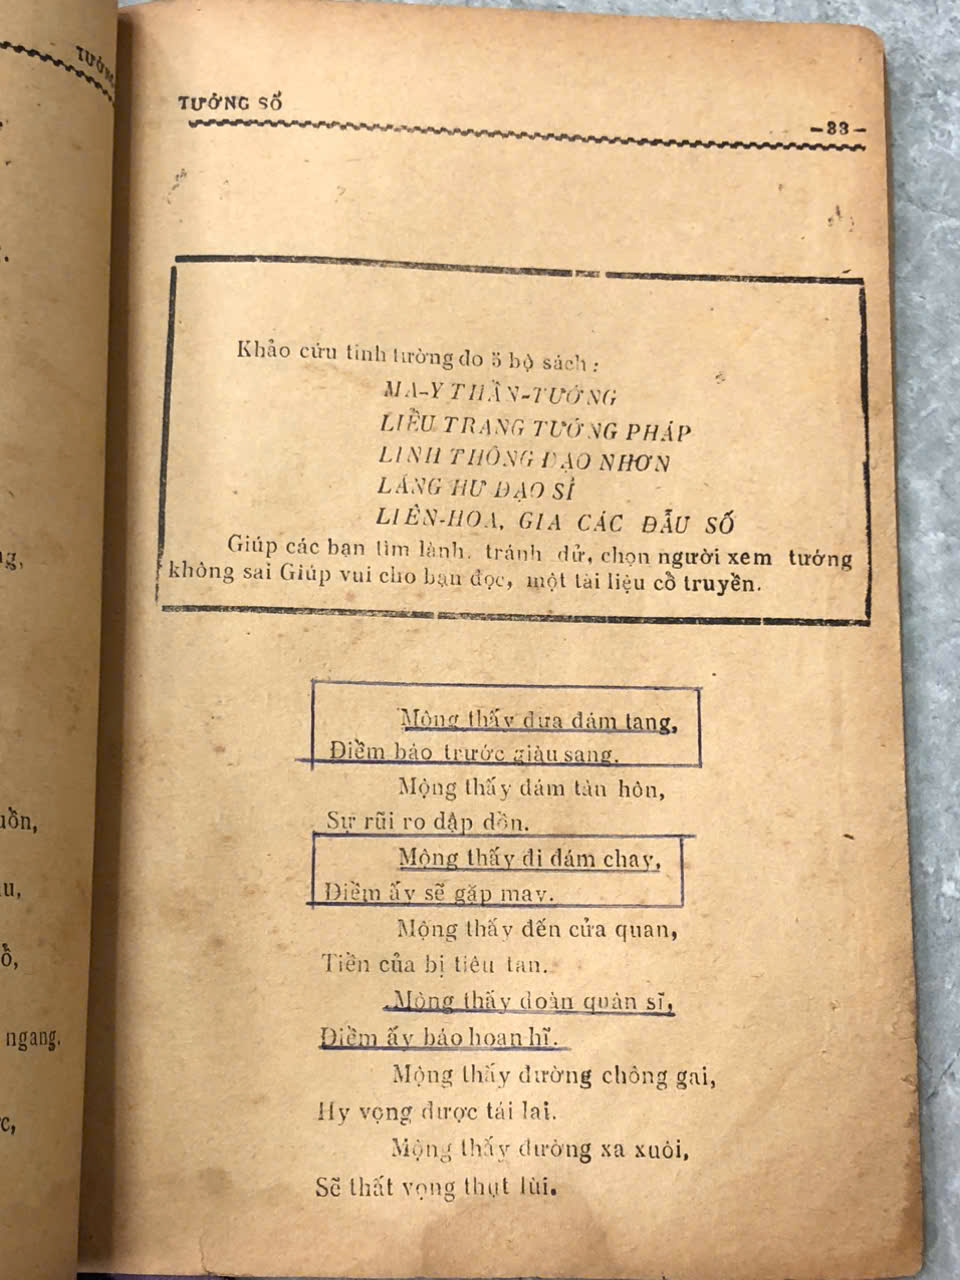 TƯỚNG SỐ
—33—
Khảo cứu tinh tường do 5 bộ sách :
MA-Y THẦN-TƯỚNG
LIỀU TRANG TƯỚNG PHÁP
LINH THÔNG ĐẠO NHƠN
LÁNG HƯ ĐẠO SĨ
LIÊN-HOA, GIA CÁC ĐẪU SỐ
Giúp các bạn tìm lành. tránh dử, chọn người xem tướng
không sai Giúp vui cho bạn đọc, một tài liệu cổ truyền.
Mộng thấy đưa đám tang,
Điềm báo trước giàu sang.
Mộng thấy đám tân hôn,
Sự rũi ro dập dồn.
Mộng thấy đi đám chay,
Điềm ấy sẽ gặp may.
Mộng thấy đến cửa quan,
Tiền của bị tiêu tan.
Mộng thấy đoàn quân sĩ,
Điềm ấy báo hoan hĩ.
Mộng thấy đường chông gai,
Hy vọng được tái lai.
Mộng thấy đường xa xuôi,
Sẽ thất vọng thụt lùi.
ngang.